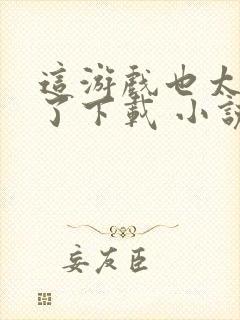 這游戲也太
了下載 小說
妄友臣